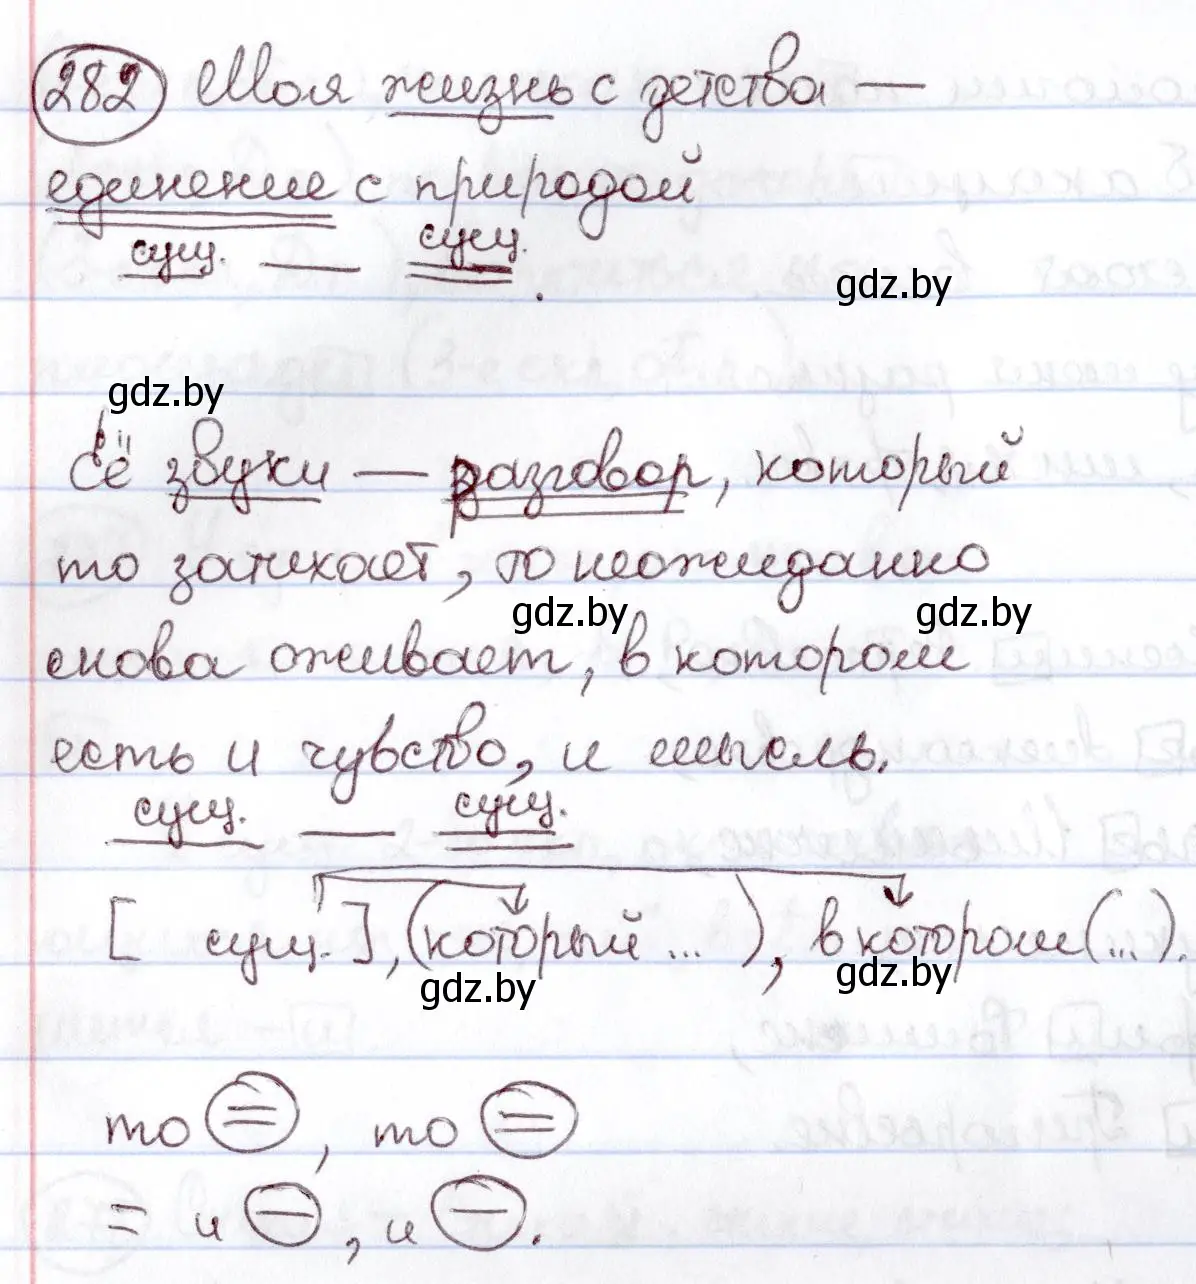 282 Моя жизнь с детства —
единение с природой
сущ. — сущ.
gdz.by
gdz.by
Её звуки — разговор, который
то затихает, то неожиданно
gdz.by gdz.by
снова оживает, в котором
есть и чувство, и мысль.
сущ. — сущ.
[ сущ. ], (который ... ), в котором (...).
gdz.by gdz.by
то =, то =
= и —, и —.